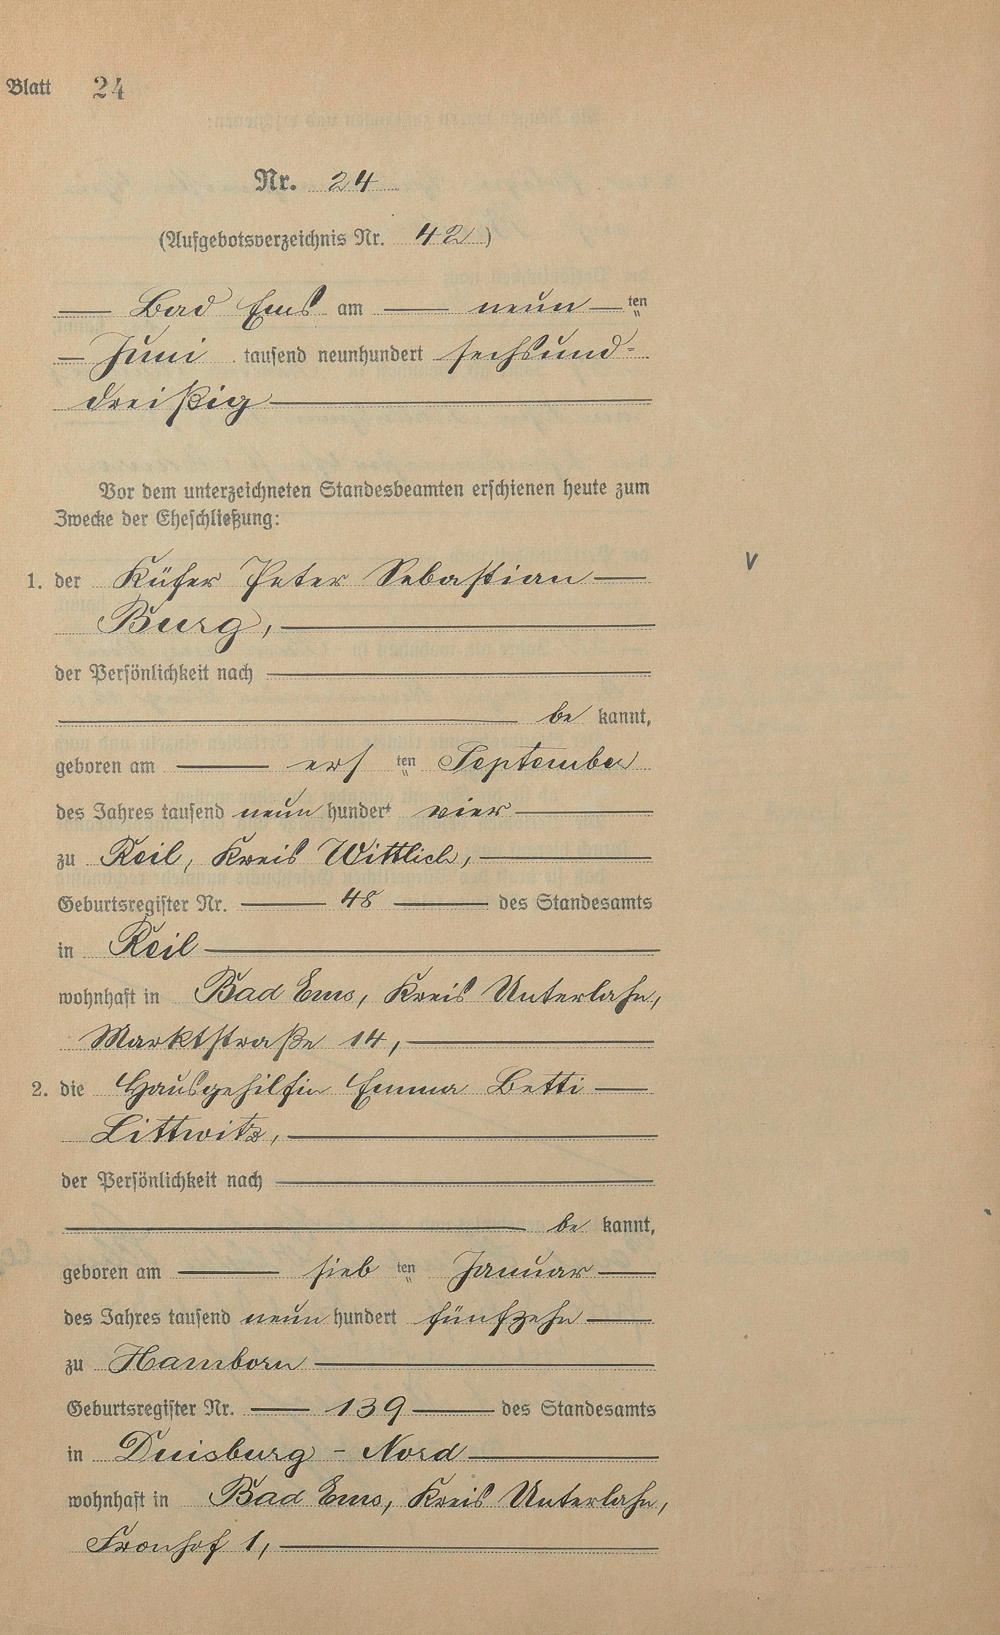 Blatt 24
Nr. 24
(Aufgebotsverzeichnis Nr. 42)
Bad Ems am neunten
Juni tausend neunhundert sechsund-
dreißig
Vor dem unterzeichneten Standesbeamten erschienen heute zum
Zwecke der Eheschließung:
1. der Küfer Peter Sebastian
Burg,
der Persönlichkeit nach
be kannt,
geboren am ersten September
des Jahres tausend neun hundert vier
zu Reil, Kreis Wittlich,
Geburtsregister Nr. 48 des Standesamts
in Reil
wohnhaft in Bad Ems, Kreis Unterlahn,
Marktstraße 14,
2. die Hausgehilfin Emma Betti
Littwitz,
der Persönlichkeit nach
be kannt,
geboren am siebten Januar
des Jahres tausend neun hundert fünfzehn
zu Hamborn
Geburtsregister Nr. 139 des Standesamts
in Duisburg - Nord
wohnhaft in Bad Ems, Kreis Unterlahn,
Fronhof 1,